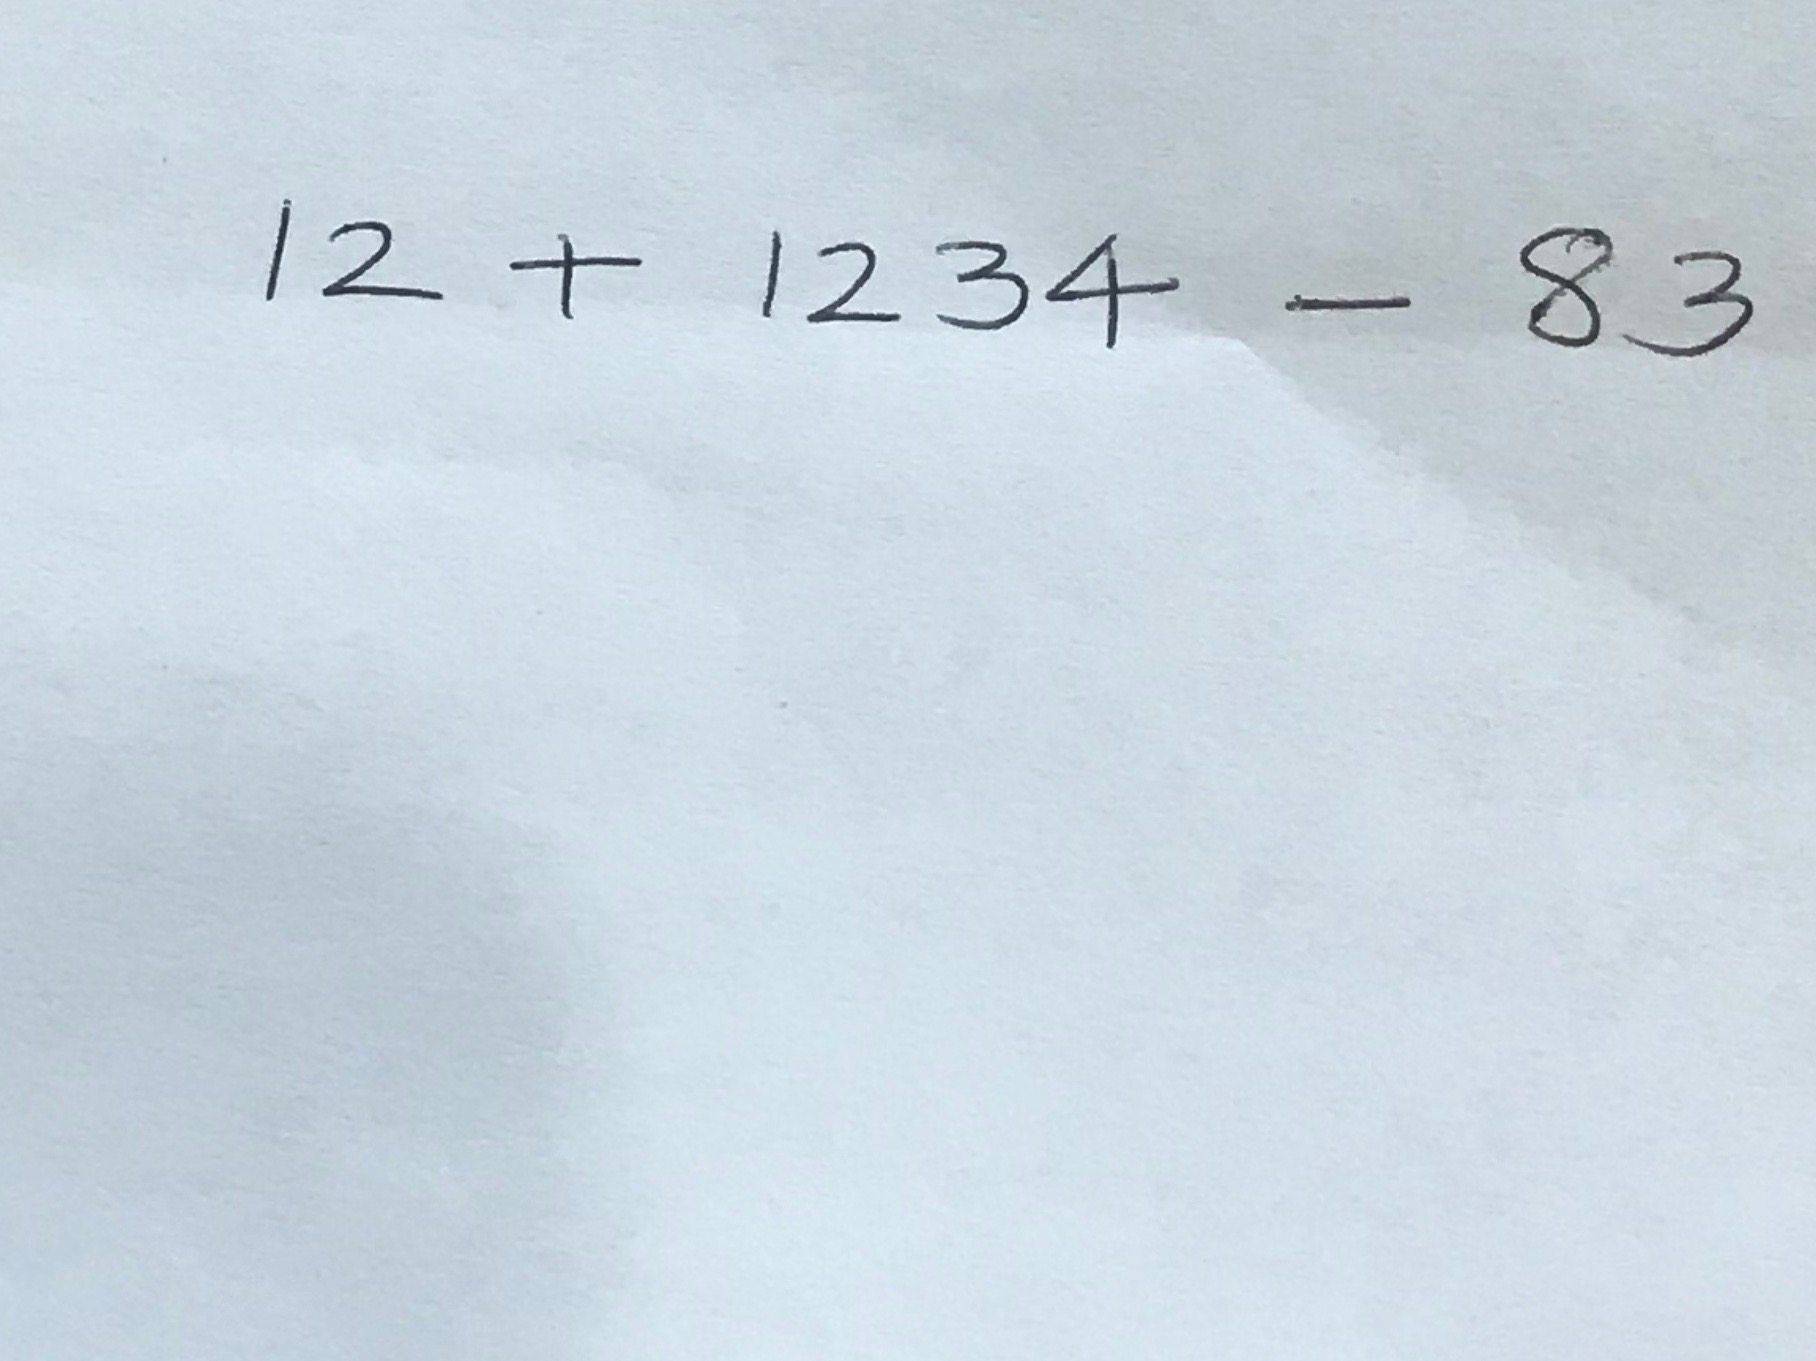 12 + 1234 - 83